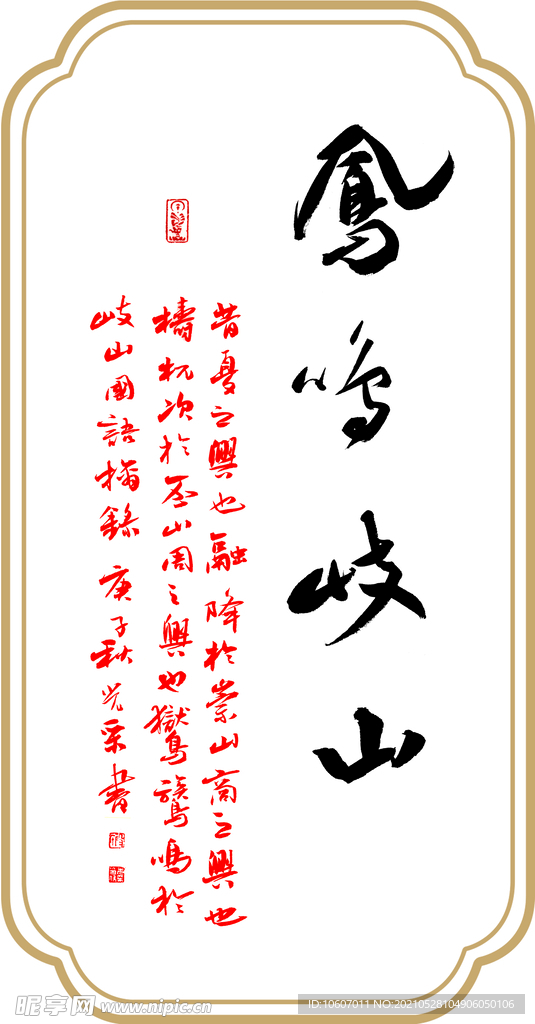 鳳鳴岐山
昔夏之興也融降於崇山商之興也
檮杌次於丕山周之興也鸑鷟鳴於
岐山國語摘錄 庚子秋光書
昵享网 www.nipic.cn
ID:10607011 NO:20210528104906050106